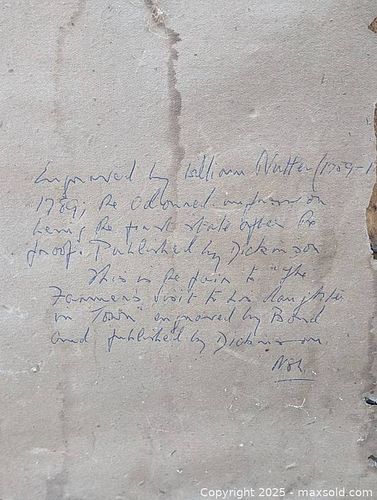 Engraved by William Nutter (1759-1
1789; the coloured impression
being the first state after the
proof. Published by Dickinson
This is the pair to "The
Farmers visit to his daughter
in Town" engraved by Bond
and published by Dickinson
Copyright © 2025 - maxsold.com